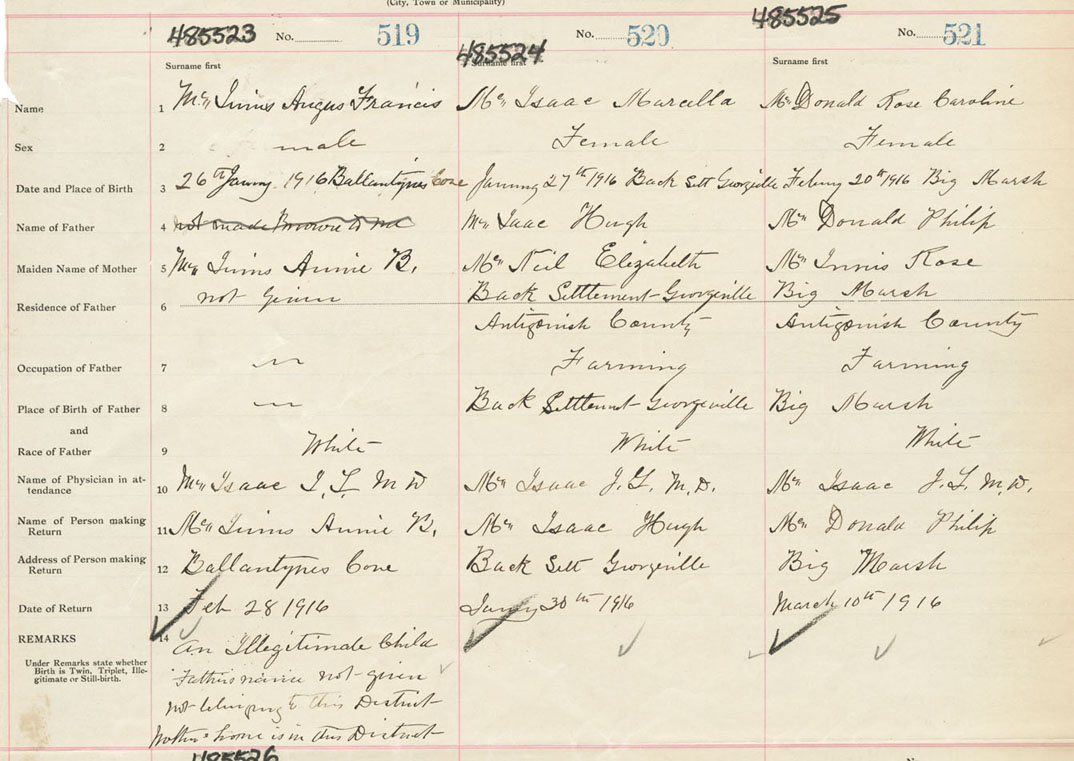 (City, Town or Municipality)
485523 No. 519
485524 No. 520
485525 No. 521
Surname first
Surname first
Surname first
Name 1 Mc Innis Angus Francis
Mc Isaac Marcella
Mc Donald Rose Caroline
Sex 2 male
Female
Female
Date and Place of Birth 3 26th Janury. 1916 Ballantynes Cove
Janury 27th 1916 Back Sett Georgeville
Febury 20th 1916 Big Marsh
Name of Father 4 not made known to me
Mc Isaac Hugh
Mc Donald Philip
Maiden Name of Mother 5 Mc Innis Annie B.
Mc Neil Elizabeth
Mc Innis Rose
Residence of Father 6 not given
Back Settlement Georgeville
Antigonish County
Big Marsh
Antigonish County
Occupation of Father 7 〃
Farming
Farming
Place of Birth of Father 8 〃
Back Settlement Georgeville
Big Marsh
and
Race of Father 9 White
White
White
Name of Physician in at-
tendance 10 Mc Isaac J. L. M D
Mc Isaac J. L. M. D.
Mc Isaac J. L. M. D.
Name of Person making
Return 11 Mc Innis Annie B.
Mc Isaac Hugh
Mc Donald Philip
Address of Person making
Return 12 Ballantynes Cove
Back Sett Georgeville
Big Marsh
Date of Return 13 Feb 28 1916
Janry 30th 1916
March 10th 1916
REMARKS 14 an Illegitimate Child
Under Remarks state whether
Birth is Twin, Triplet, Ille-
gitimate or Still-birth.
Fathers name not given
not belonging to this District
Mothers home is in this District
485526
No.